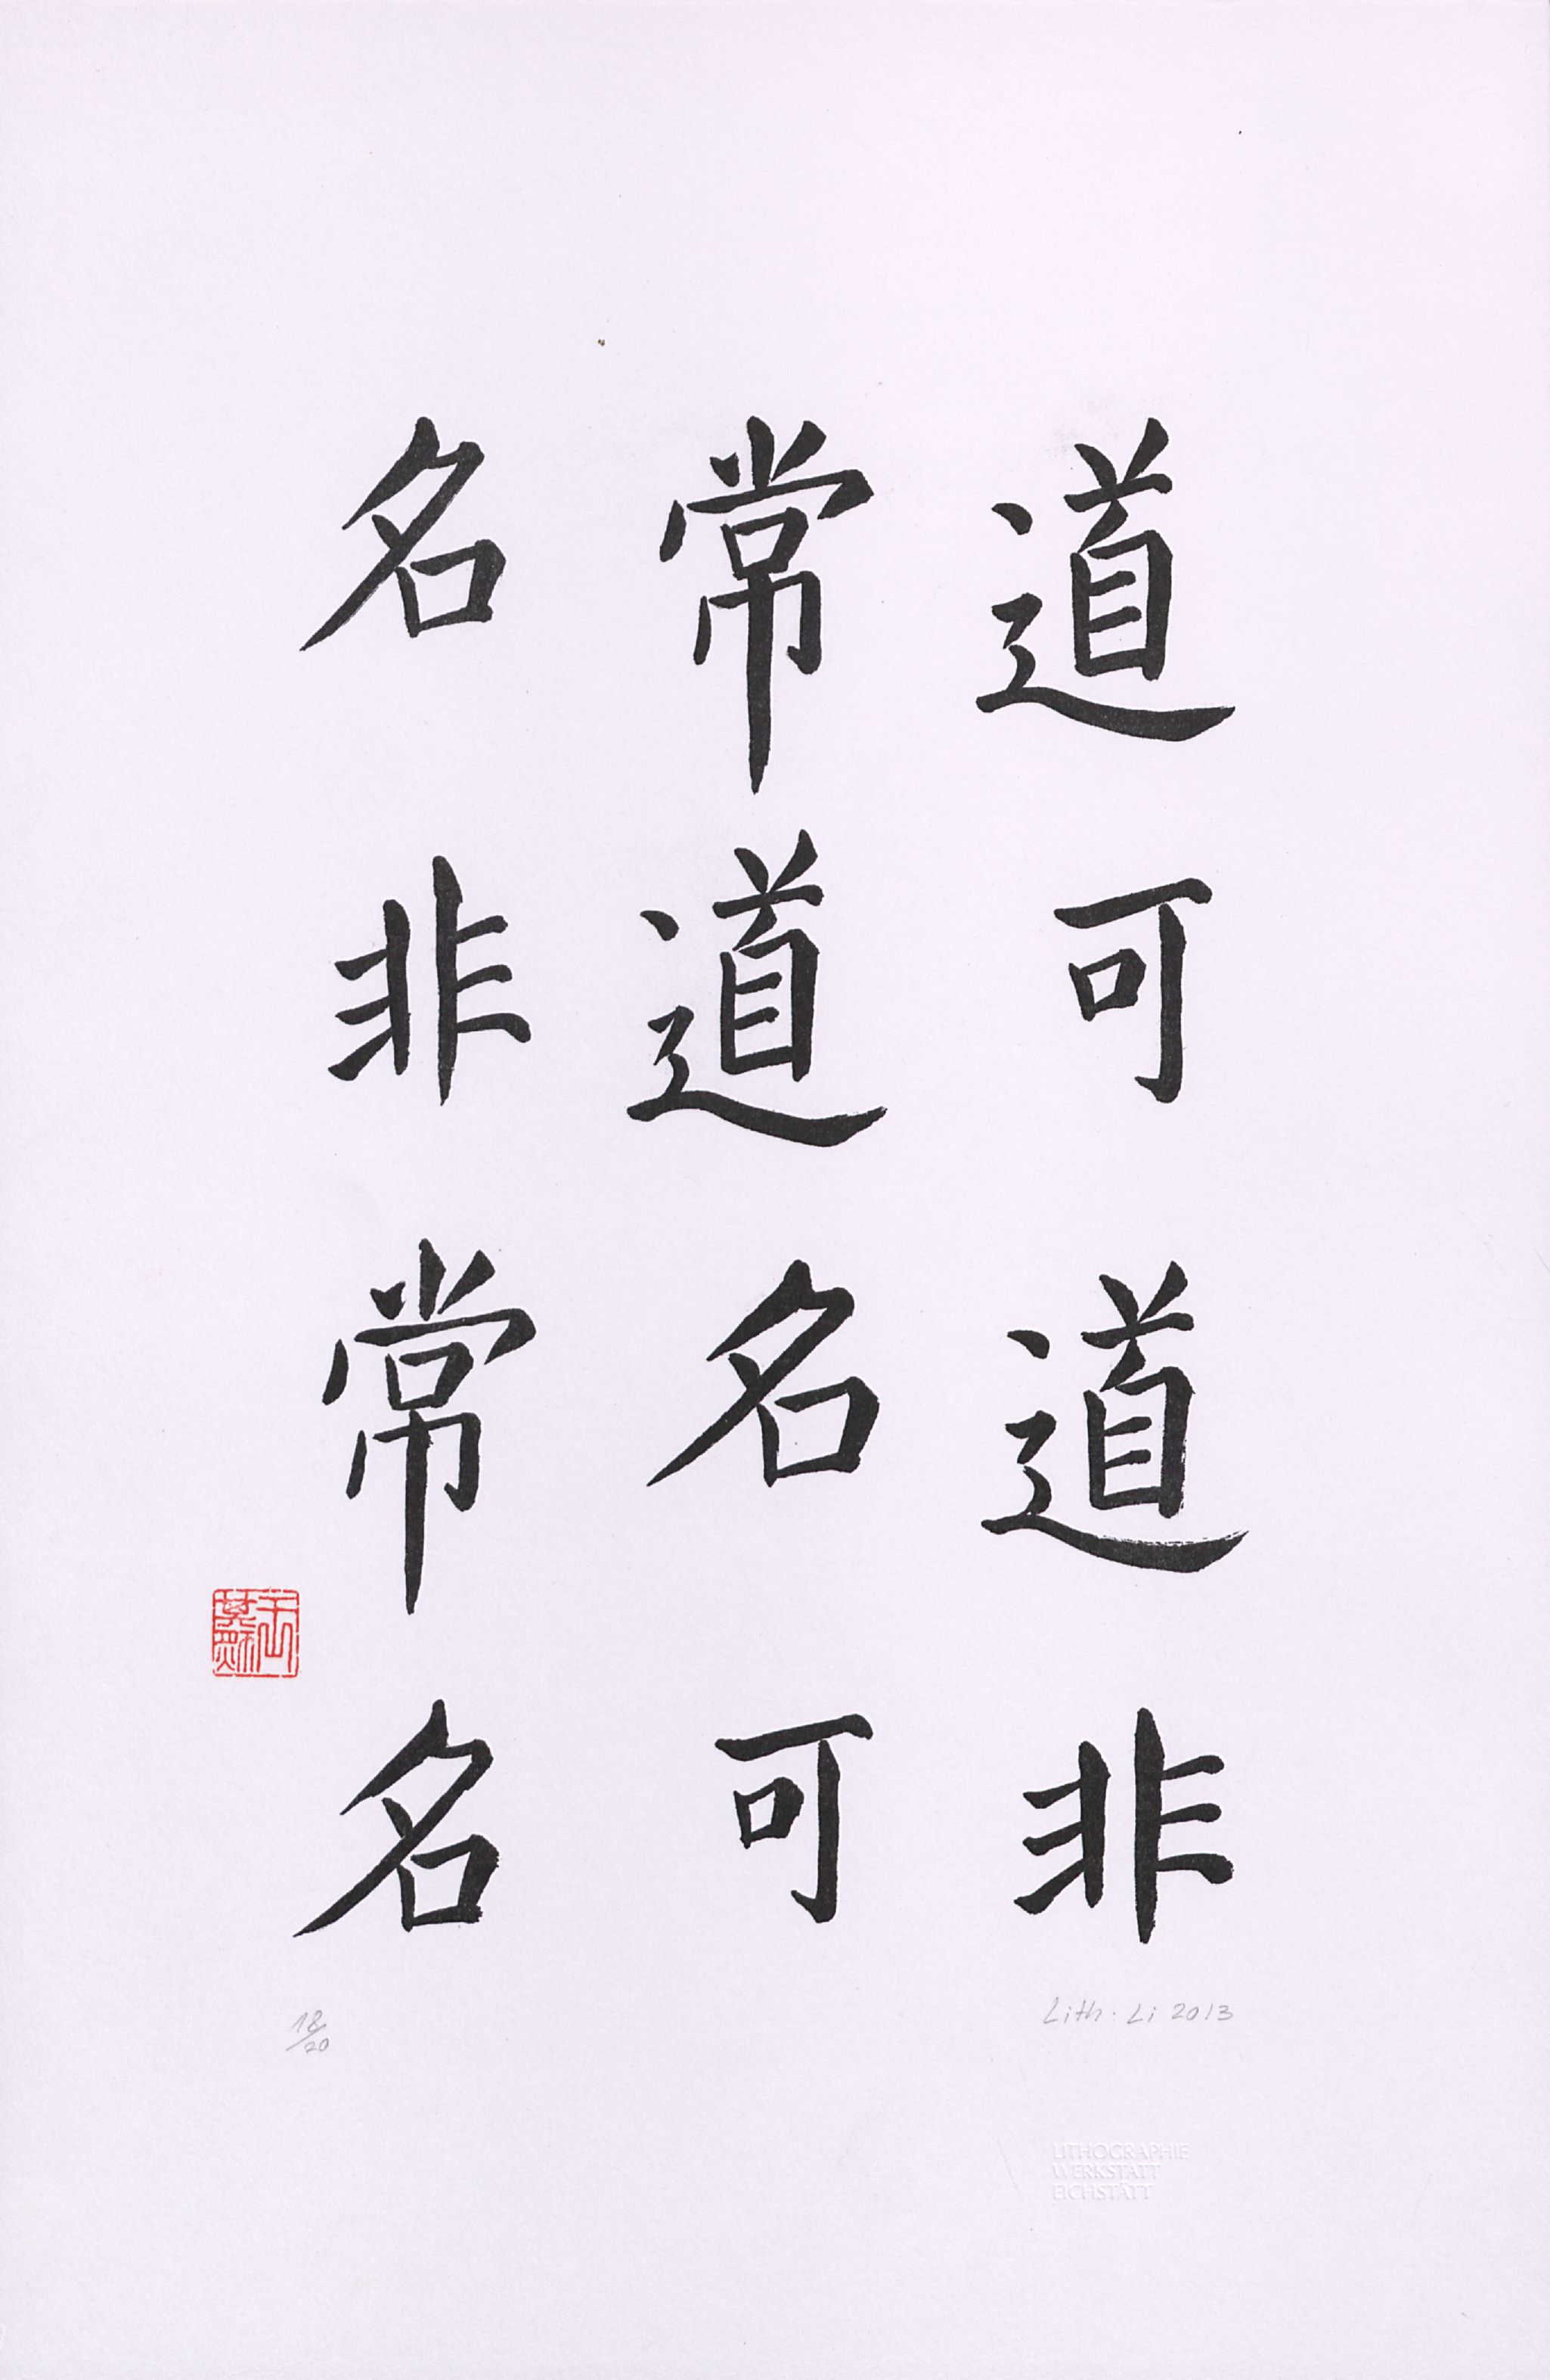 道可道非
常道名可
名非常名
18/20
Lith. Li 2013
LITHOGRAPHIE
WERKSTATT
EICHSTÄTT